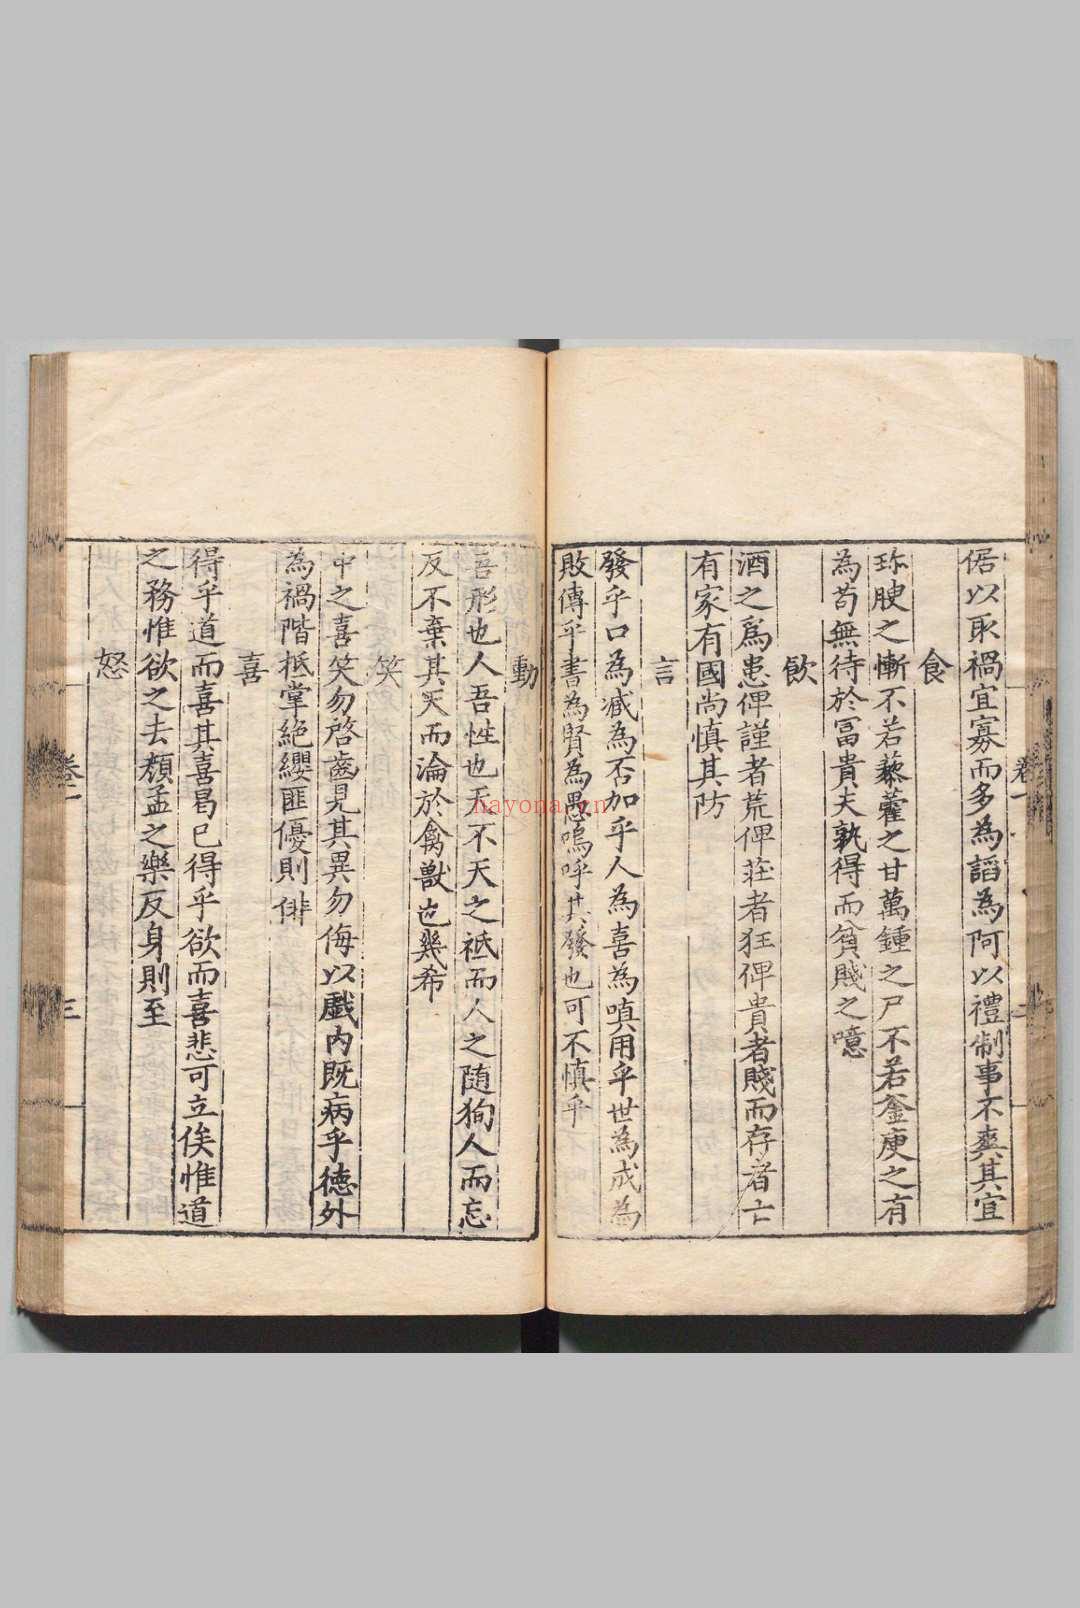 倨以取禍宜寡而多為謟為阿以禮制事不爽其宜
食
珎腴之慚不若藜藿之甘萬鍾之尸不若釜庾之有
為苟無待於冨貴夫孰得而貧賤之噫
飲
酒之爲患俾謹者荒俾荘者狂俾貴者賤而存者亡
有家有國尚慎其防
言
發乎口為臧為否加乎人為喜為嗔用乎世為成為
敗傳乎書為賢為愚嗚呼其發也可不慎乎
卷一
動
吾形也人吾性也天不天之祗而人之随狥人而忘
反不棄其天而淪於禽獸也㡬希
笑
中之喜笑勿啓齒見其異勿侮以戯内既病乎徳外
為禍階抵掌絶纓匪優則俳
喜
得乎道而喜其喜曷已得乎欲而喜悲可立俟惟道
之務惟欲之去顔孟之樂反身則至
怒
卷一
三
hayona.cn